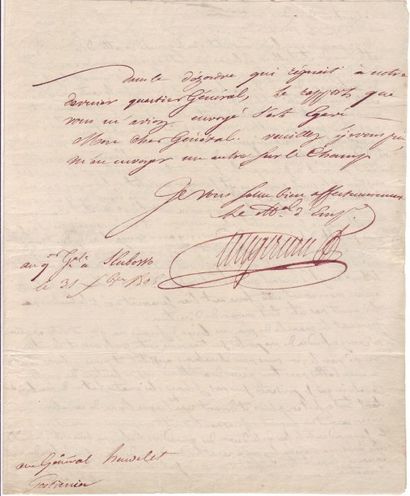 Dans le désordre qui régnait à notre
dernier quartier Général, le rapport que
vous m'aviez envoyé s'est égaré
Mon cher Général. veuillez je vous prie
m'en envoyer un autre sur le Champ
Je vous salue bien affectueusement
Le Mal. d'Emp.
Augereau
au qer Gal. à
le 31 Xbre
au Général